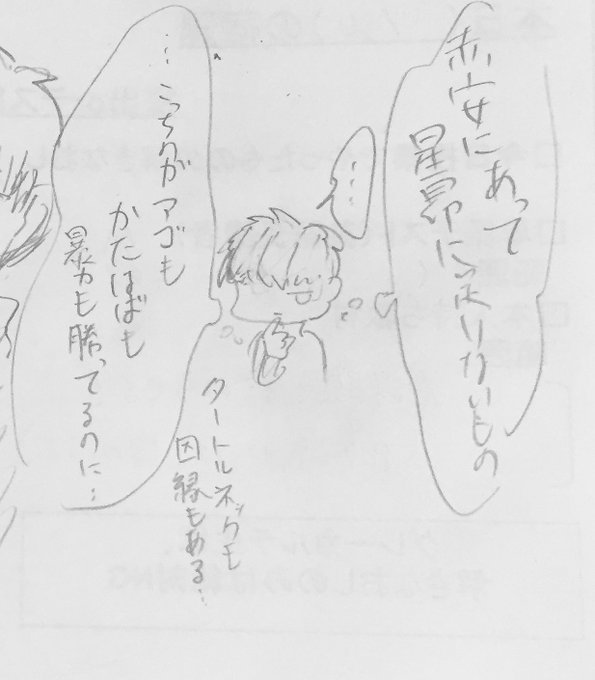 赤安にあって
星昴に足りないもの
…
…こっちのがアゴも
かたはばも
暴力も勝ってるのに…
タートルネックも
因縁もある…